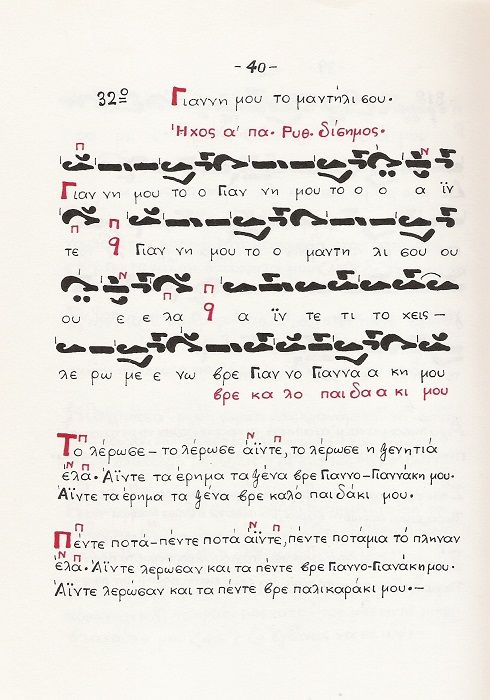 - 40 -
32º Γιαννη μου το μαντήλι σου.
Ήχος α' πα. Ρυθ. δίσημος.
Π Ν
Γιαν νη μου το ο Γιαν νη μου το ο ο α ϊν
τε Π q Γιαν νη μου το ο μαντη λι σου ου
Ν Π
ου ε ε λα Π q α ϊν τε τι το χεις -
λε ρω με ε νω βρε Γιαν νο Γιαννα α κη μου
βρε κα λο παι δα α κι μου
Π Ν Π
Το λέρωσε - το λέρωσε άϊντε, το λέρωσε η ξενητιά
Ν Π
έλα. Άϊντε τα έρημα τα ξένα βρε Γιαννο-Γιαννάκη μου.
Άϊντε τα έρημα τα ξένα βρε καλό παιδάκι μου.
Π Ν Π
Πέντε ποτά-πέντε ποτά άϊντε, πέντε ποτάμια τό πλήναν
Ν Π
έλα. Άϊντε λερώσαν και τα πέντε βρε Γιαννο-Γιανάκη μου.
Άϊντε λερώσαν και τα πέντε βρε παλικαράκι μου.-